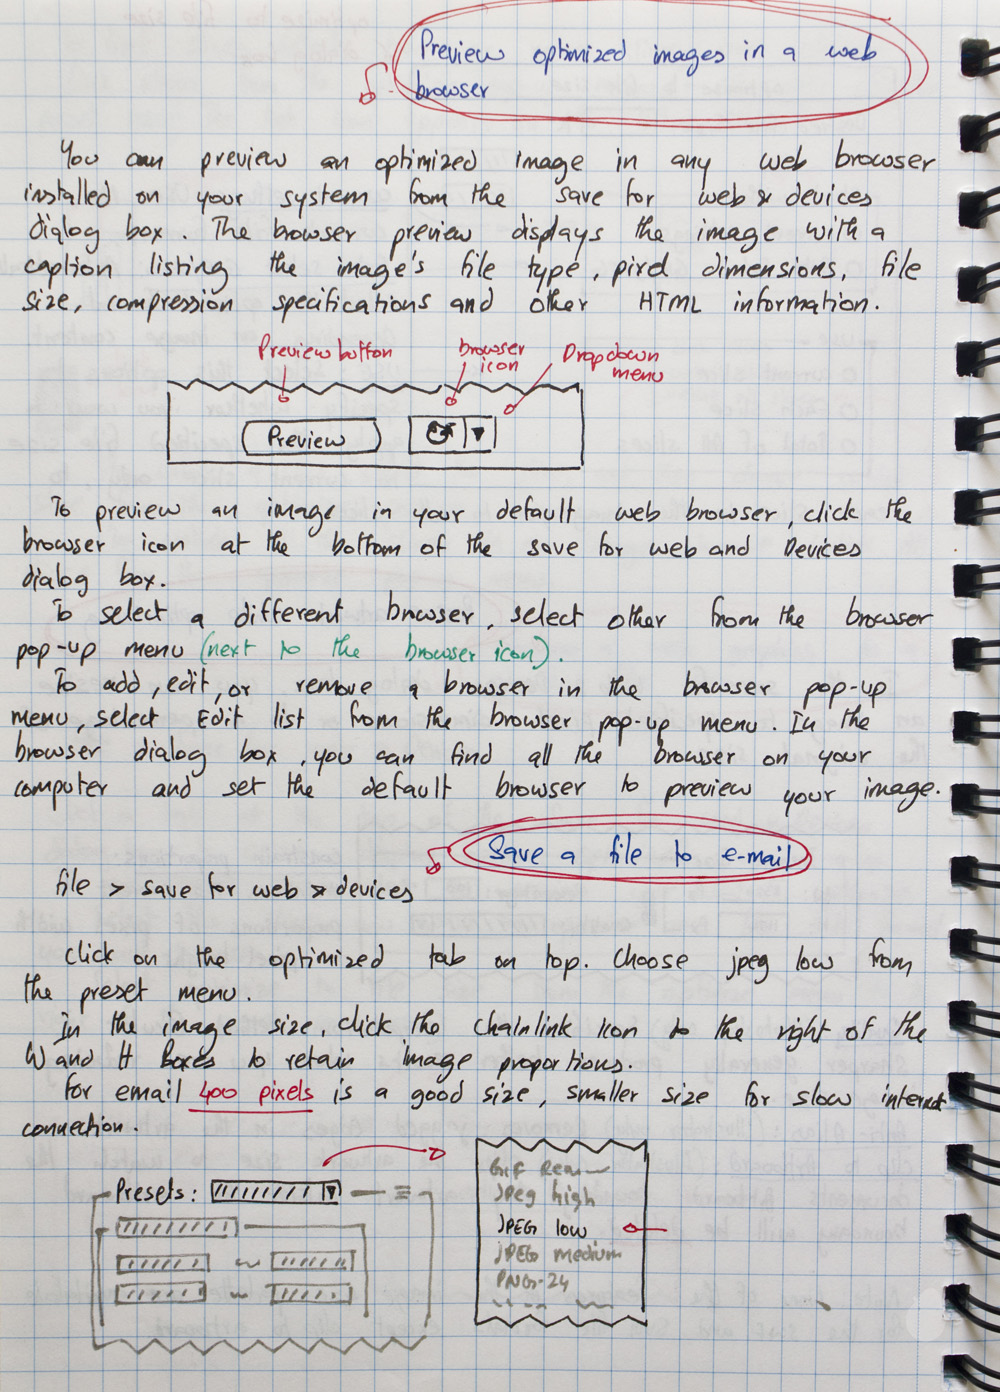 Preview optimized images in a web
browser
You can preview an optimized image in any web browser
installed on your system from the save for web & devices
dialog box. The browser preview displays the image with a
caption listing the image's file type, pixel dimensions, file
size, compression specifications and other HTML information.
Preview button
browser
icon
Drop down
menu
Preview
To preview an image in your default web browser, click the
browser icon at the bottom of the save for web and Devices
dialog box.
To select a different browser, select other from the browser
pop-up menu (next to the browser icon).
To add, edit, or remove a browser in the browser pop-up
menu, select Edit list from the browser pop-up menu. In the
browser dialog box, you can find all the browser on your
computer and set the default browser to preview your image.
Save a file to e-mail
file > save for web & devices
click on the optimized tab on top. Choose jpeg low from
the preset menu.
In the image size, click the chainlink icon to the right of the
W and H boxes to retain image proportions.
for email 400 pixels is a good size, smaller size for slow internet
connection.
Presets:
GIF
Jpeg high
JPEG low
JPEG medium
PNG-24